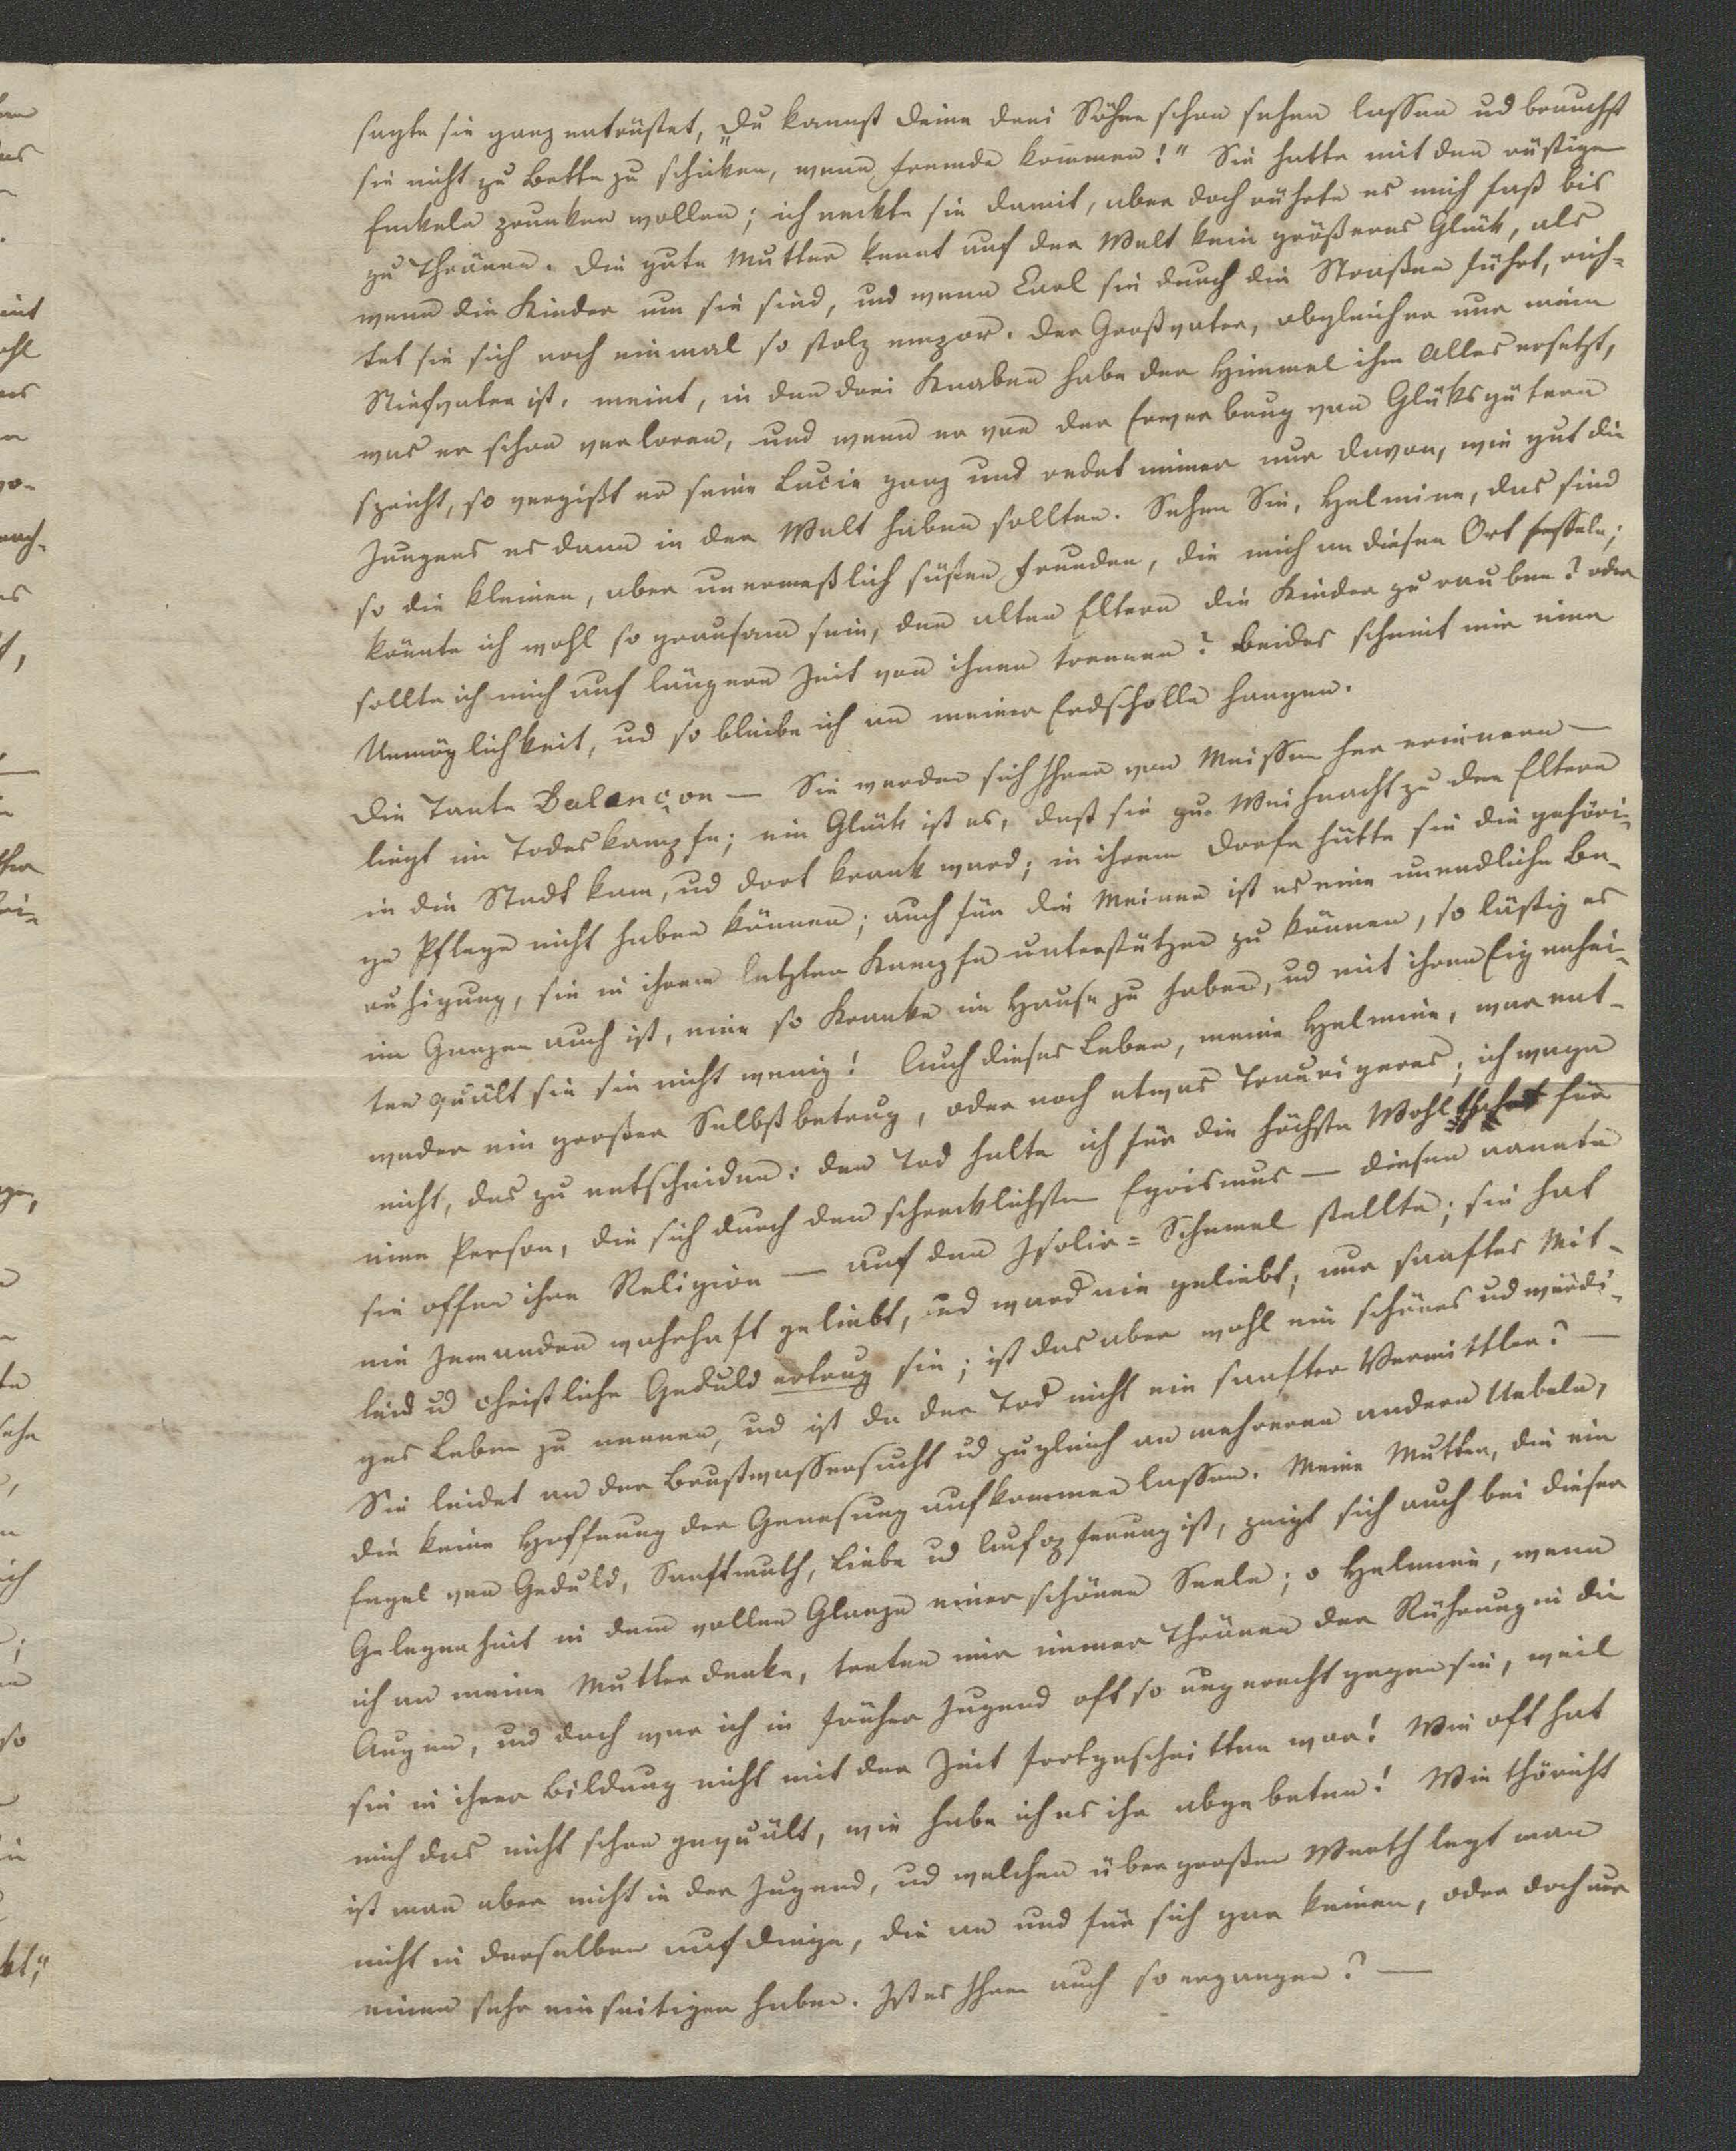 sagte sie ganz entrüstet, „Du kannst deine drei Söhne schon sehen lassen ud brauchst
sie nicht zu Bette zu schicken, wenn Fremde kommen!" Sie hatte mit den rüstigen
Enkeln prunken wollen; ich neckte sie damit, aber doch rührte es mich fast bis
zu Thränen. Die gute Mutter kennt auf der Welt kein größeres Glück, als
wenn die Kinder um sie sind, und wenn Carl sie durch die Straßen führt, rich-
tet sie sich noch einmal so stolz empor. Der Großvater, obgleich er nur mein
Stiefvater ist, meint, in den drei Knaben habe der Himmel ihm Alles ersetzt,
was er schon verloren, und wenn er von der Erwerbung von Glüksgütern
spricht, so vergißt er seine Lucie ganz und redet immer nur davon, wie gut die
Jungens es dann in der Welt haben sollten. Sehen Sie, Helmine, das sind
so die kleinen, aber unermeßlich süßen Freuden, die mich an diesen Ort fesseln;
könnte ich wohl so grausam sein, den alten Eltern die Kinder zu rauben? oder
sollte ich mich auf längere Zeit von ihnen trennen? Beides scheint mir eine
Unmöglichkeit, ud so bleibe ich an meiner Erdscholle hangen.
Die Tante Balançon — Sie werden sich Ihrer von Meissen her erinnern —
liegt im Todeskampfe; ein Glück ist es, daß sie zur Weihnacht zu den Eltern
in die Stadt kam, ud dort krank ward; in ihrem Dorfe hätte sie die gehöri-
ge Pflege nicht haben können; auch für die Meinen ist es eine unendliche Be-
ruhigung, sie in ihrem letzten Kampfe unterstützen zu können, so lästig es
im Ganzen auch ist, eine so Kranke im Hause zu haben, ud mit ihren Eigenhei-
ten quält sie sie nicht wenig! Auch dieses Leben, meine Helmine, war ent-
weder ein großer Selbstbetrug, oder noch etwas Traurigeres; ich wage
nicht, das zu entscheiden: den Tod halte ich für die höchste Wohlthat für
eine Person, die sich durch den schrecklichsten Egoismus — diesen nannte
sie offen ihre Religion — auf den Isolir=Schemel stellte; sie hat
nie Jemanden wahrhaft geliebt, und ward nie geliebt; nur sanftes Mit-
leid ud christliche Geduld ertrug sie; ist das aber wohl ein schönes ud würdi-
ges Leben zu nennen, ud ist da der Tod nicht ein sanfter Vermittler? —
Sie leidet an der Brustwassersucht ud zugleich an mehreren andern Uebeln,
die keine Hoffnung der Genesung aufkommen lassen. Meine Mutter, die ein
Engel von Geduld, Sanftmuth, Liebe ud Aufopferung ist, zeigt sich auch bei dieser
Gelegenheit in dem vollen Glanze einer schönen Seele; o Helmine, wenn
ich an meine Mutter denke, treten mir immer Thränen der Rührung in die
Augen, und doch war ich in früher Jugend oft so ungerecht gegen sie, weil
sie in ihrer Bildung nicht mit der Zeit fortgeschritten war! Wie oft hat
mich das nicht schon gequält, wie habe ich es ihr abgebeten! Wie thöricht
ist man aber nicht in der Jugend, ud welchen übergroßen Werth legt man
nicht in derselben auf Dinge, die an und für sich gar keinen, oder doch nur
einen sehr einseitigen haben. Ist es Ihnen auch so ergangen? —